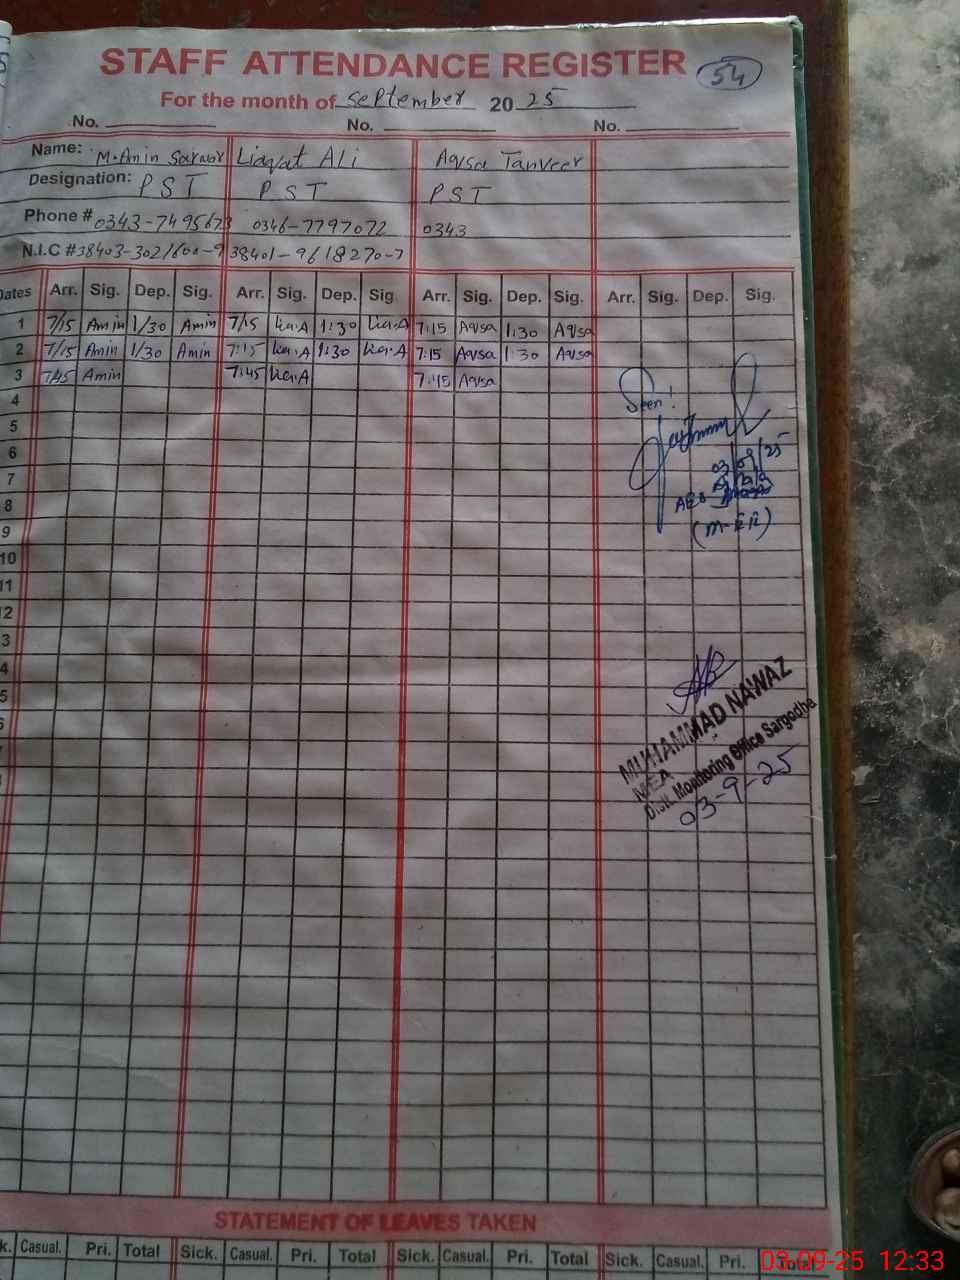 STAFF ATTENDANCE REGISTER 54
For the month of September 2025
No. No. No.
Name: M. Amin Sarwar Liaqat Ali Aqsa Tanveer
Designation: PST PST PST
Phone # 0343-7495673 0346-7797072 0343
N.I.C # 38401-9618270-7
Dates Arr. Sig. Dep. Sig. Arr. Sig. Dep. Sig. Arr. Sig. Dep. Sig. Arr. Sig. Dep. Sig.
1 7/15 Amin 1/30 Amin 7/15 Lia.A 1:30 Lia.A 7:15 Aqsa 1:30 Aqsa
2 7/15 Amin 1/30 Amin 7:15 Lia.A 1:30 Lia.A 7:15 Aqsa 1:30 Aqsa
3 7/45 Amin 7:45 Lia.A 7:45 Aqsa
4
Seen!
5
6
03/09/25
7
8
AEO
9
10
11
12
3
4
5
6
MUHAMMAD NAWAZ
MEA
Distt. Monitoring Office Sargodha
03-9-25
STATEMENT OF LEAVES TAKEN
k. Casual. Pri. Total Sick. Casual. Pri. Total Sick. Casual. Pri. Total Sick. Casual. Pri. Total
03-09-25 12:33